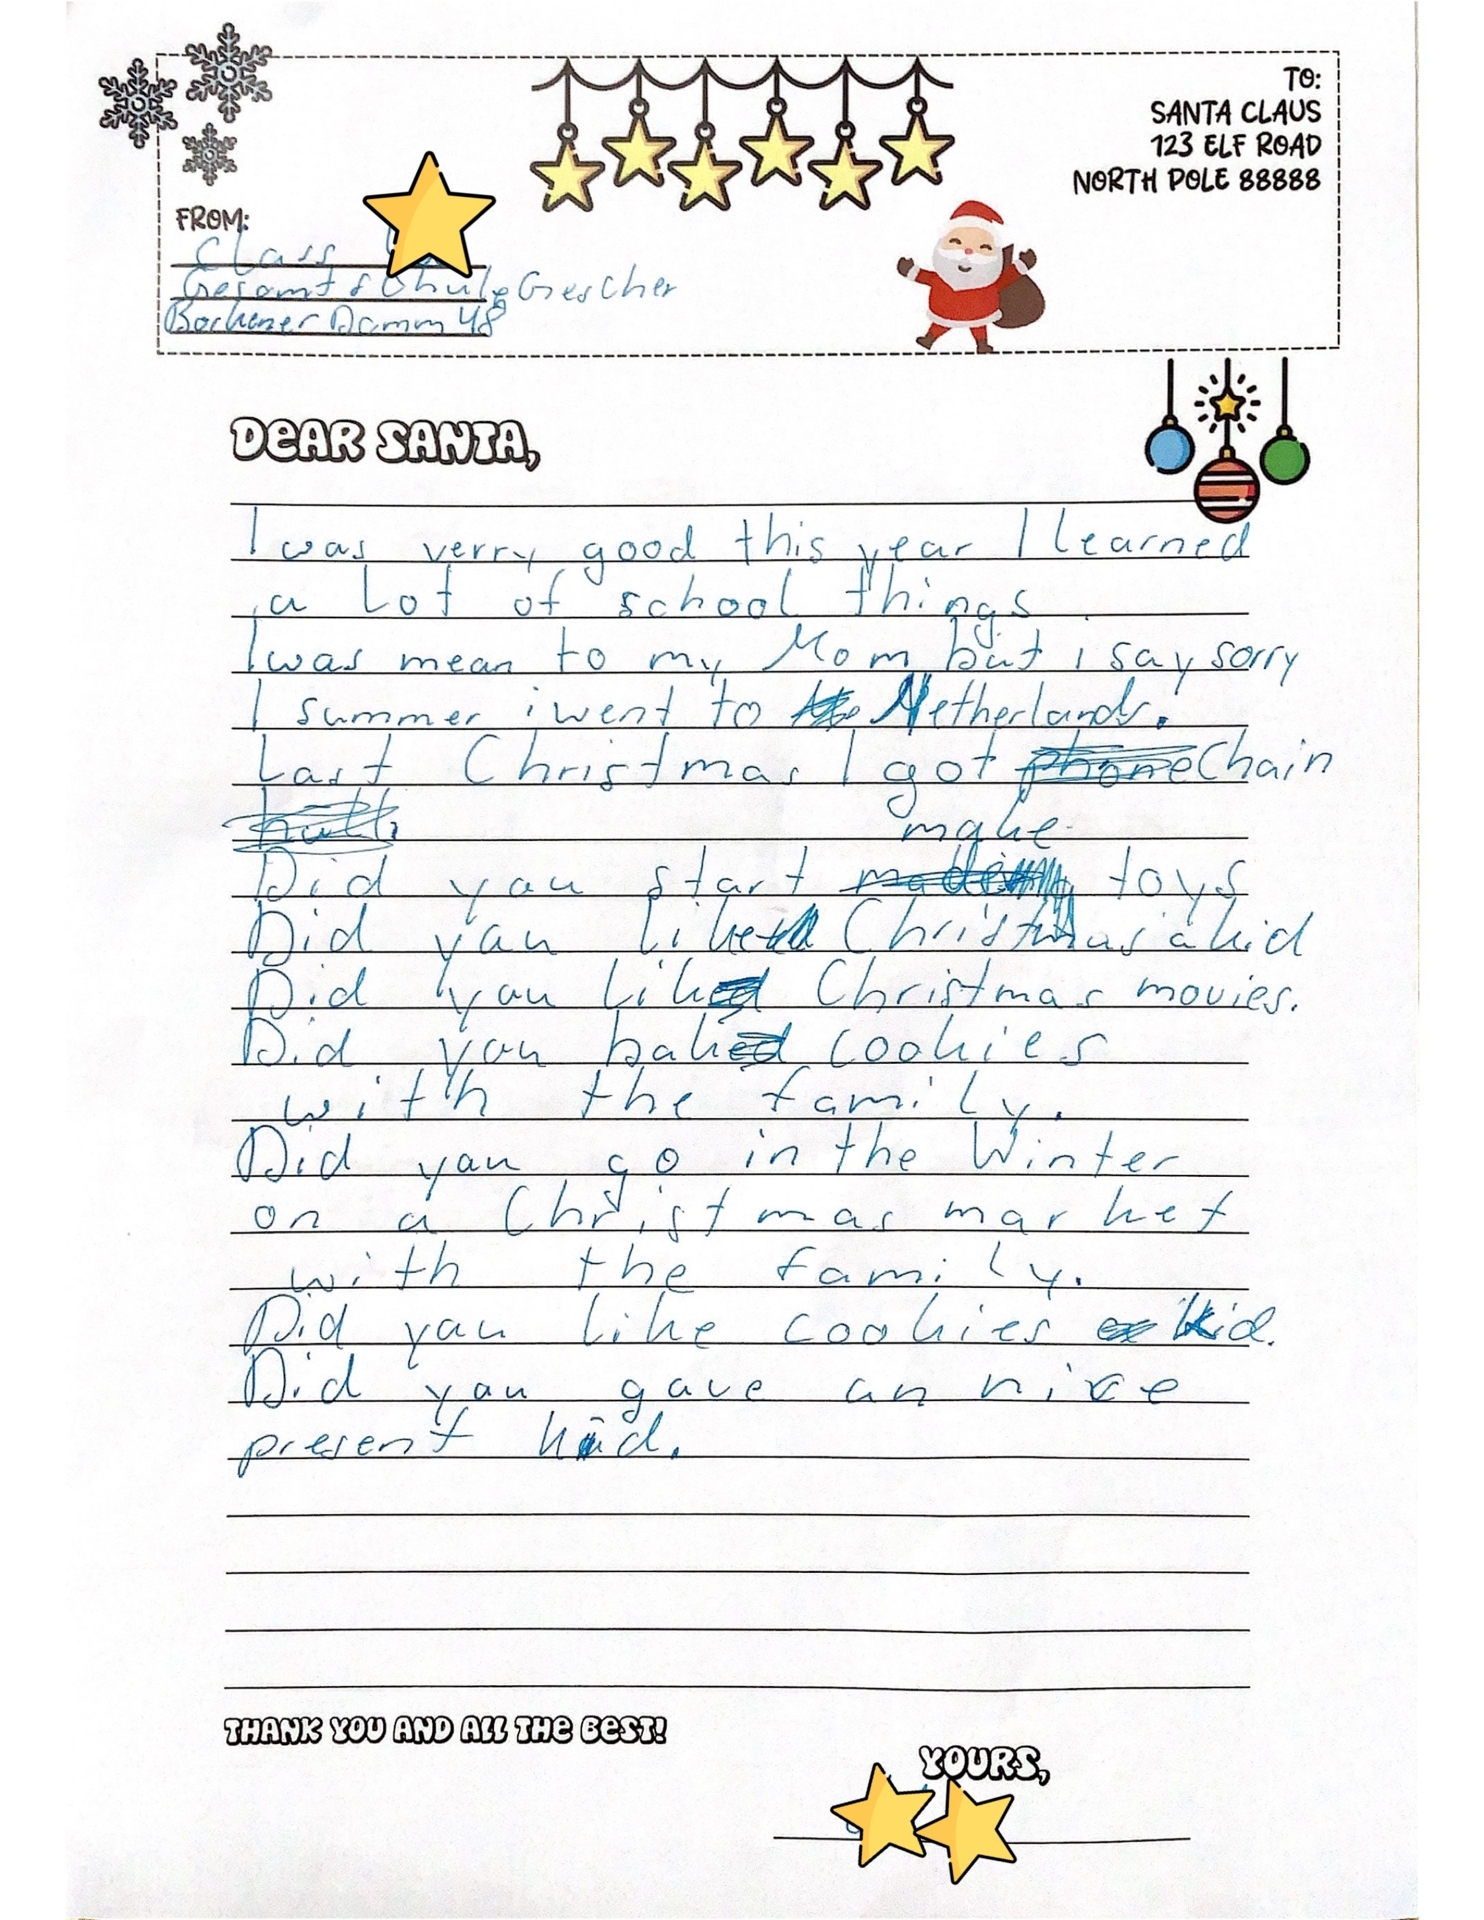 TO:
SANTA CLAUS
123 ELF ROAD
NORTH POLE 88888
FROM:
Class
Gesamtschule Gescher
Borkener Damm 48
DEAR SANTA,
I was verry good this year I learned
a Lot of school things
I was mean to my Mom but i say sorry
I summer i went to Netherlands.
Last Christmas I got phone Chain
make
Did you start toys
Did you like Christmas a kid
Did you like Christmas movies.
Did you bake cookies
with the family.
Did you go in the Winter
on a Christmas market
with the family.
Did you like cookies kid.
Did you gave an nice
present kid.
THANK YOU AND ALL THE BEST!
YOURS,